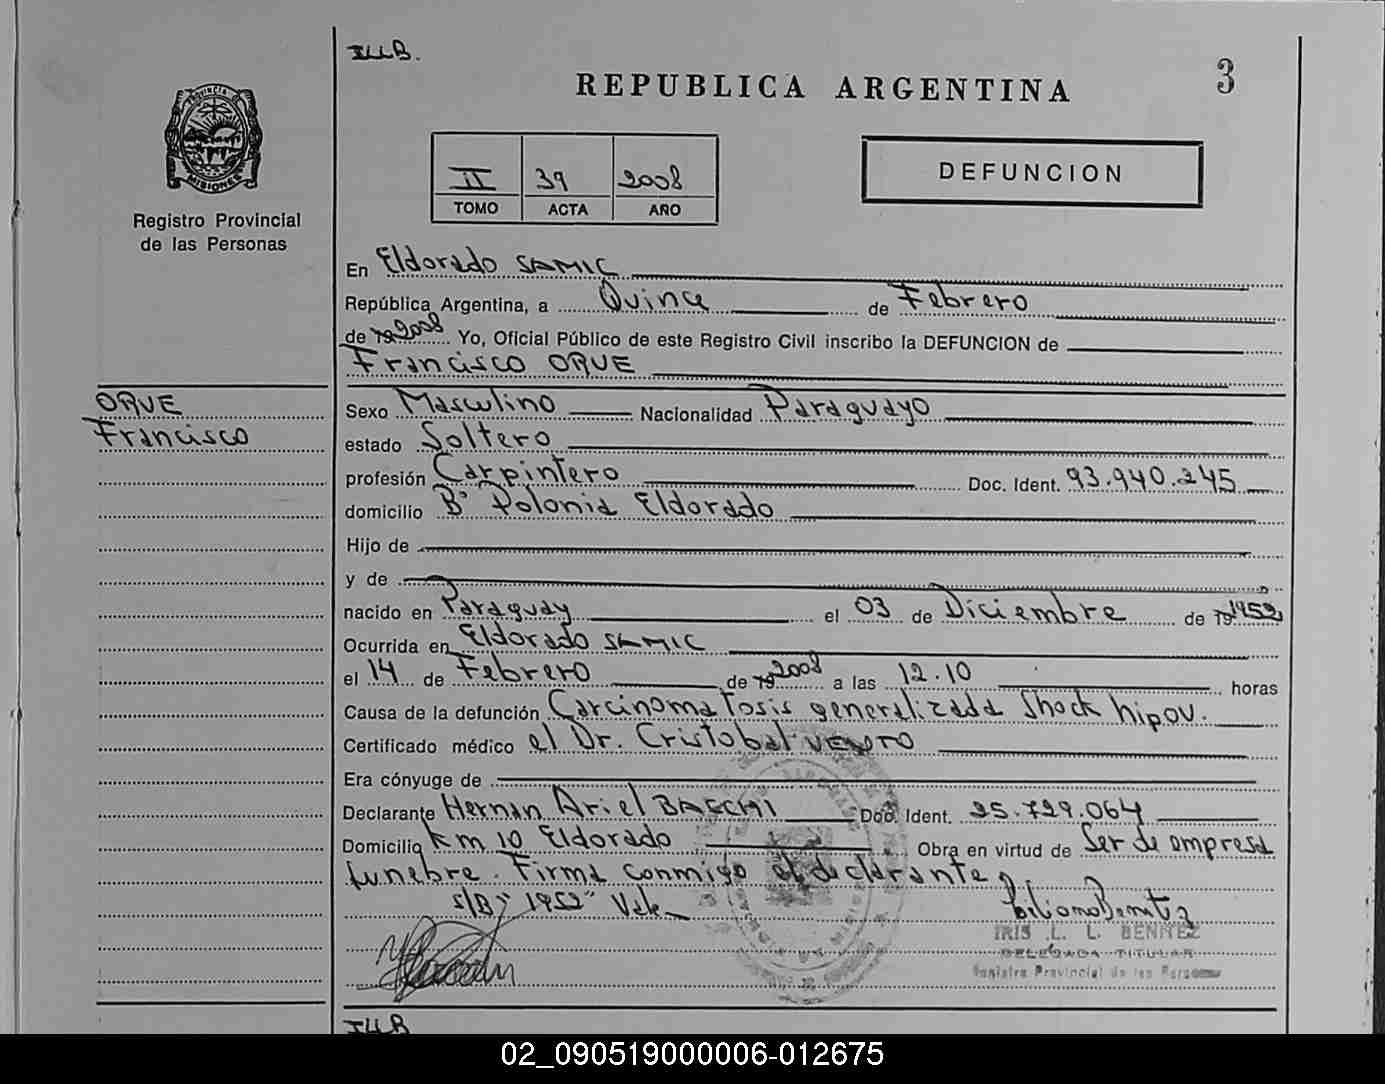 ILLB.
REPUBLICA ARGENTINA
3
PROVINCIA
MISIONES
II 39 2008
TOMO ACTA AÑO
DEFUNCION
Registro Provincial
de las Personas
En Eldorado SAMIC
República Argentina, a Quince de Febrero
de 19 2008 Yo, Oficial Público de este Registro Civil inscribo la DEFUNCION de
Francisco ORUE
ORUE
Francisco
Sexo Masculino Nacionalidad Paraguayo
estado Soltero
profesión Carpintero Doc. Ident. 93.940.245
domicilio Bº Polonia Eldorado
Hijo de
y de
nacido en Paraguay el 03 de Diciembre de 19 1952
Ocurrida en Eldorado SAMIC
el 14 de Febrero de 19 2008 a las 12.10 horas
Causa de la defunción Carcinomatosis generalizada Shock hipov.
Certificado médico el Dr. Cristobal
Era cónyuge de
Declarante Hernan Ariel BAECHI Doc. Ident. 25.729.064
Domicilio Km 10 Eldorado Obra en virtud de Ser de empresa
funebre. Firma conmigo el declarante
s/B "1952" Vale
IRIS L. L. BENITEZ
DELEGADA TITULAR
Registro Provincial de las Personas
ILLB
02_090519000006-012675